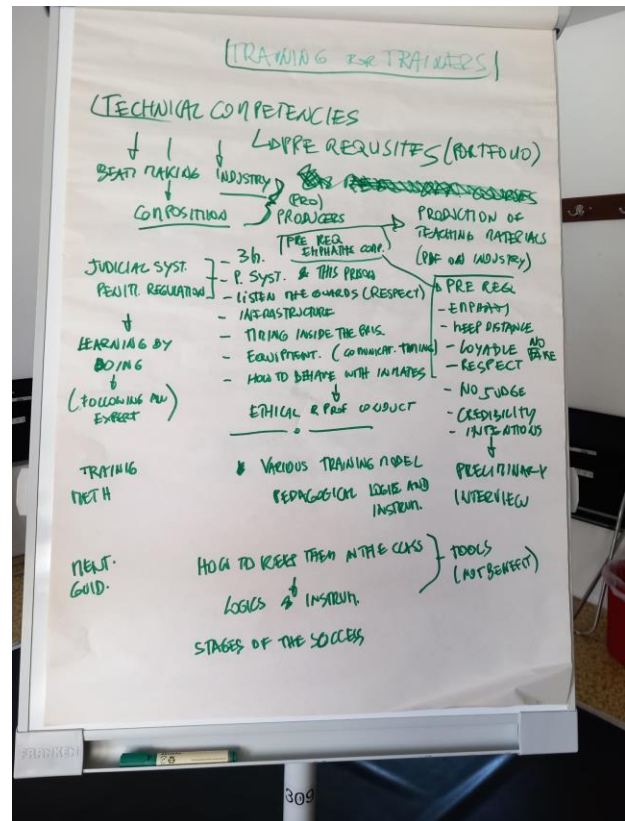 TRAINING FOR TRAINERS
TECHNICAL COMPETENCIES
PRE REQUSITES (PORTFOLIO)
BEAT MAKING INDUSTRY
COMPOSITION
(PRO)
PRODUCERS
PRODUCTION OF
TEACHING MATERIALS
(PDF ON INDUSTRY)
PRE REQ
EMPHATHE COMP.
JUDICIAL SYST.
PENIT. REGULATION
- 3h.
- P. SYST. & THIS PRISON
- LISTEN THE GUARDS (RESPECT)
- INFRASTRUCTURE
- TIMING INSIDE THE PRIS.
- EQUIPMENT. (COMUNICAT. TIMING)
- HOW TO BEHAVE WITH INMATES
ETHICAL & PROF CONDUCT
LEARNING BY
DOING
(FOLLOWING AN
EXPERT)
PRE REQ
- EMPHATY
- KEEP DISTANCE
- LOYABLE NO
- RESPECT
- NO JUDGE
- CREDIBILITY
- INTENTIONS
PRELIMINARY
INTERVIEW
TRAINIG
METH
VARIOUS TRAINING MODEL
PEDAGOGICAL LOGIC AND
INSTRUM.
MENT.
GUID.
HOW TO KEEP THEM IN THE CLASS
LOGICS & INSTRUM.
TOOLS
(NOT BENEFIT)
STAGES OF THE SUCCESS
FRANKEN
309